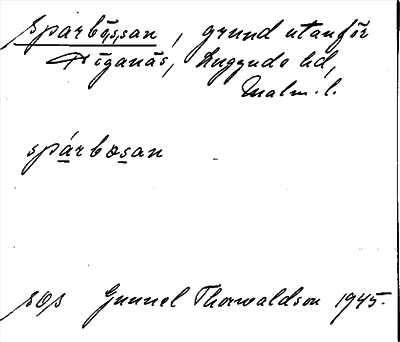 Sparbössan, grund utanför
Höganäs, Luggude hd,
Malm. l.
spárbɷsan
sOs Gunnel Thorwaldson 1945.